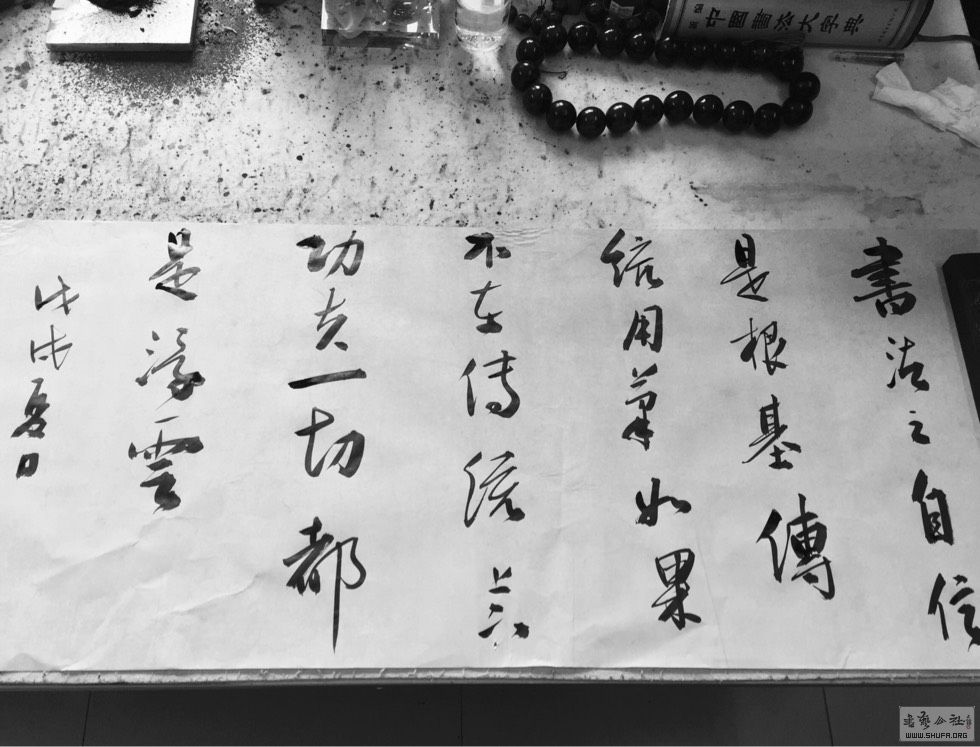 中國書法大
書法之自信
是根基傳
統用筆如果
不在傳統上
功夫一切都
是浮雲
戊戌夏日
書藝公社
WWW.SHUFA.ORG